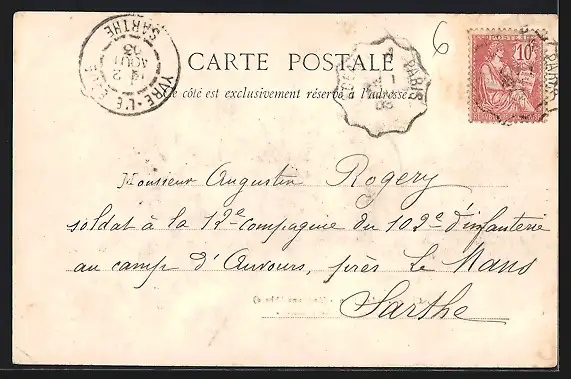 YVRÉ-L'ÉVÊQUE
SARTHE
12
AOUT
03
6
PARIS
10
PARIS
CARTE POSTALE
Ce côté est exclusivement réservé à l'adresse.
Monsieur Augustin Rogery
soldat à la 12e compagnie du 102e d'infanterie
au camp d'Auvours, près Le Mans
Sarthe